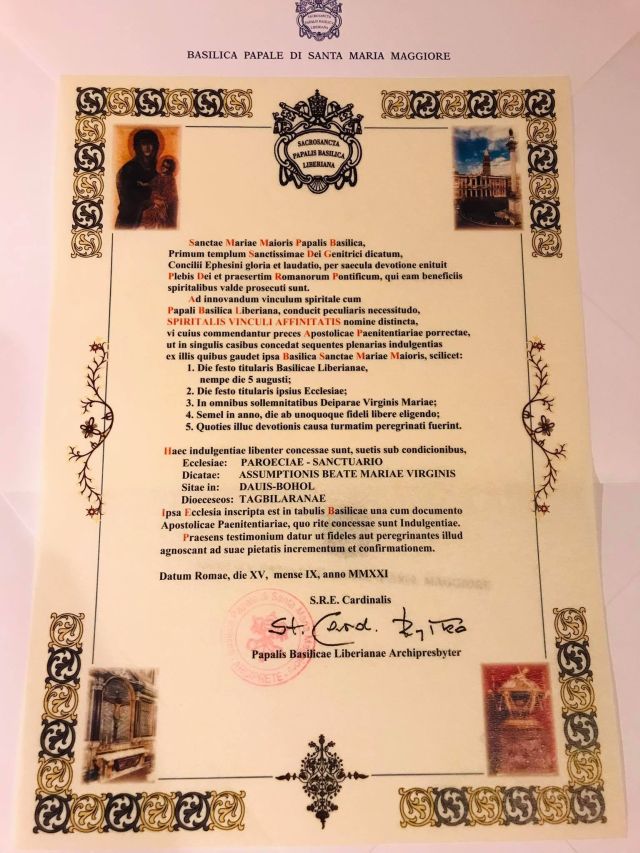 SACROSANCTA
PAPALIS BASILICA
LIBERIANA
BASILICA PAPALE DI SANTA MARIA MAGGIORE
SACROSANCTA
PAPALIS BASILICA
LIBERIANA
Sanctae Mariae Maioris Papalis Basilica,
Primum templum Sanctissimae Dei Genitrici dicatum,
Concilii Ephesini gloria et laudatio, per saecula devotione enituit
Plebis Dei et praesertim Romanorum Pontificum, qui eam beneficiis
spiritalibus valde prosecuti sunt.
Ad innovandum vinculum spirituale cum
Papali Basilica Liberiana, conducit peculiaris necessitudo,
SPIRITALIS VINCULI AFFINITATIS nomine distincta,
vi cuius commendantur preces Apostolicae Paenitentiariae porrectae,
ut in singulis casibus concedat sequentes plenarias indulgentias
ex illis quibus gaudet ipsa Basilica Sanctae Mariae Maioris, scilicet:
1. Die festo titularis Basilicae Liberianae,
nempe die 5 augusti;
2. Die festo titularis ipsius Ecclesiae;
3. In omnibus sollemnitatibus Deiparae Virginis Mariae;
4. Semel in anno, die ab unoquoque fideli libere eligendo;
5. Quoties illuc devotionis causa turmatim peregrinati fuerint.
Haec indulgentiae libenter concessae sunt, suetis sub condicionibus,
Ecclesiae: PAROECIAE - SANCTUARIO
Dicatae: ASSUMPTIONIS BEATE MARIAE VIRGINIS
Sitae in: DAUIS-BOHOL
Dioeceseos: TAGBILARANAE
Ipsa Ecclesia inscripta est in tabulis Basilicae una cum documento
Apostolicae Paenitentiariae, quo rite concessae sunt Indulgentiae.
Praesens testimonium datur ut fideles aut peregrinantes illud
agnoscant ad suae pietatis incrementum et confirmationem.
Datum Romae, die XV, mense IX, anno MMXXI
S.R.E. Cardinalis
St. Card. Ryłko
Papalis Basilicae Liberianae Archipresbyter